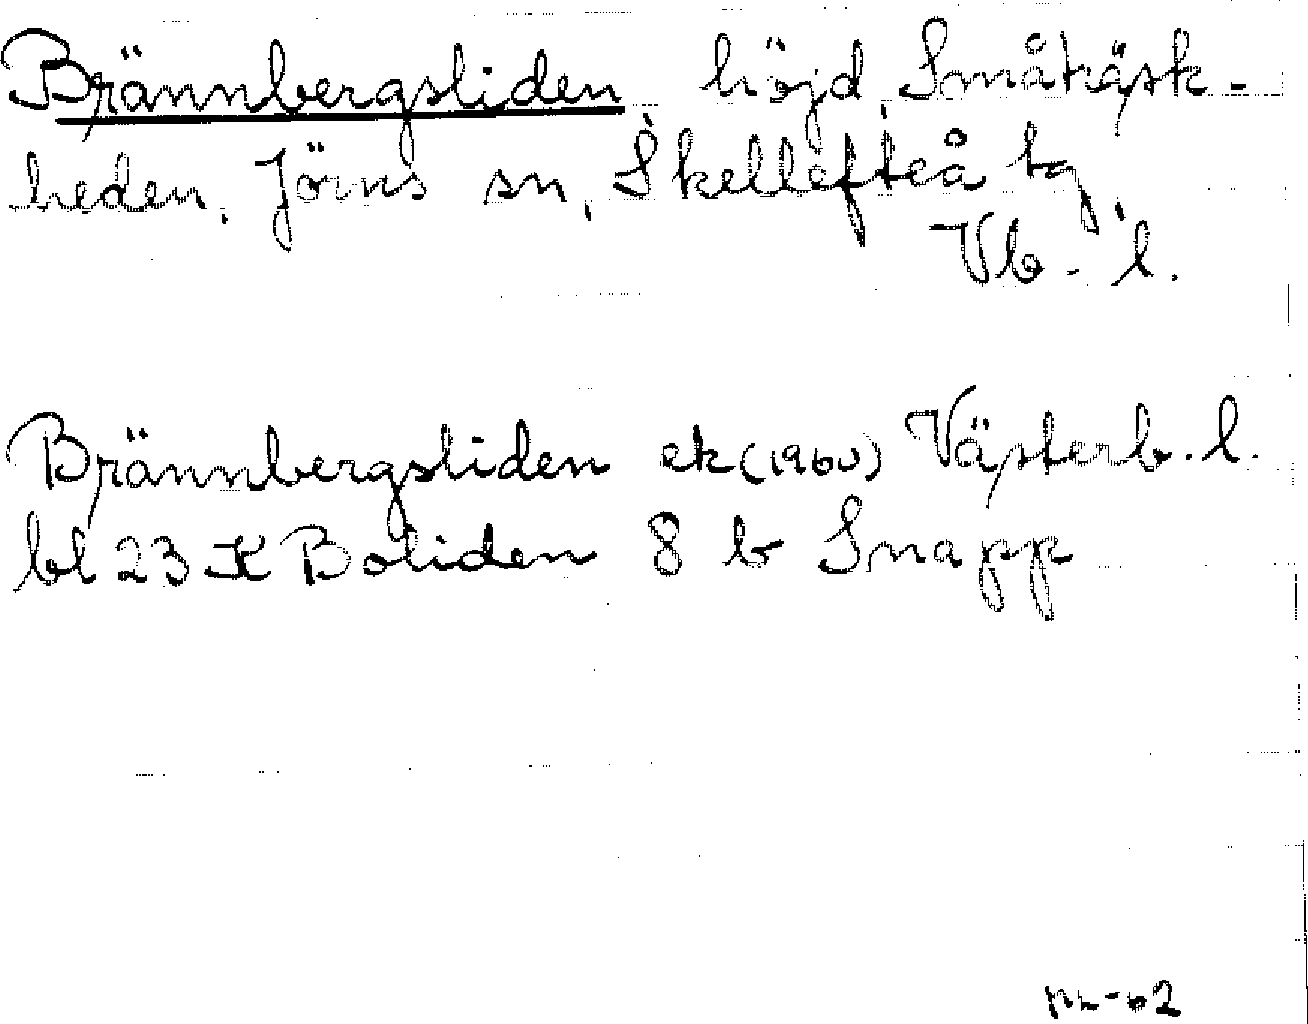 Brännbergsliden höjd Småträsk-
heden, Jörns sn, Skellefteå tg
Vb. l.
Brännbergsliden ek (1960) Västerb. l.
bl 23 K Boliden 8 b Snapp